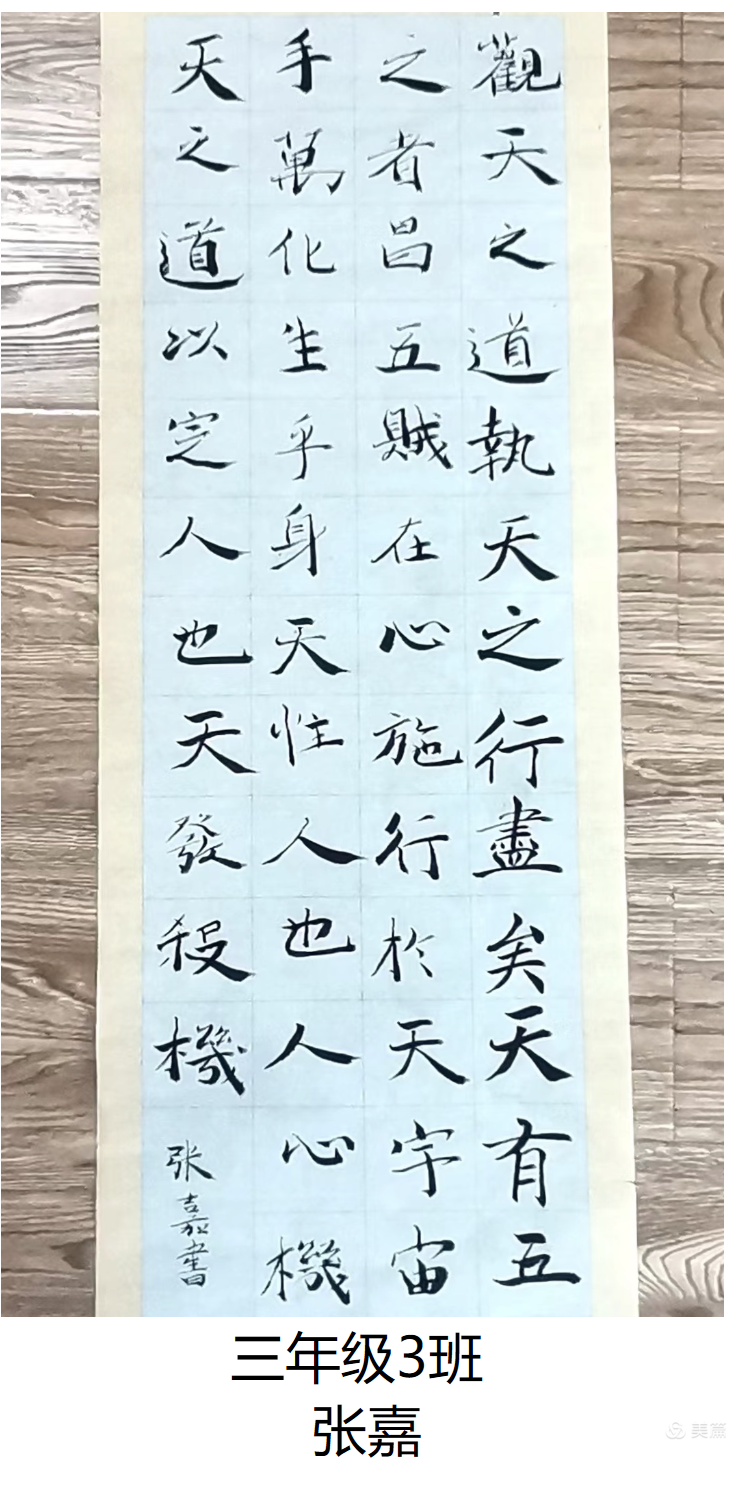 觀天之道執天之行盡矣天有五
之者昌五賊在心施行於天宇宙
手萬化生乎身天性人也人心機
天之道以定人也天發殺機
张嘉書
三年级3班
张嘉
美篇